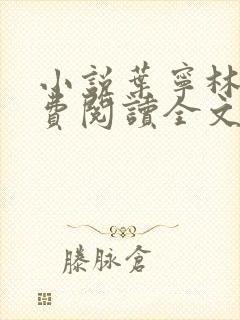 小說葉寧林
費閱讀全文
滕脉倉